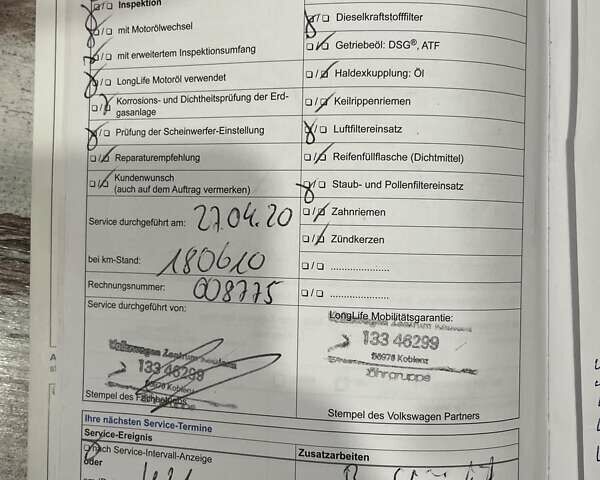 Inspektion
mit Motorölwechsel
mit erweitertem Inspektionsumfang
LongLife Motoröl verwendet
Korrosions- und Dichtheitsprüfung der Erd-
gasanlage
Prüfung der Scheinwerfer-Einstellung
Reparaturempfehlung
Kundenwunsch
(auch auf dem Auftrag vermerken)
Service durchgeführt am: 27.04.20
bei km-Stand: 180610
Rechnungsnummer: 008775
Service durchgeführt von:
Volkswagen Zentrum Koblenz
133 46299
56070 Koblenz
Stempel des Fachbetriebs
Dieselkraftstofffilter
Getriebeöl: DSG®, ATF
Haldexkupplung: Öl
Keilrippenriemen
Luftfiltereinsatz
Reifenfüllflasche (Dichtmittel)
Staub- und Pollenfiltereinsatz
Zahnriemen
Zündkerzen
.....................
.....................
LongLife Mobilitätsgarantie:
Volkswagen Zentrum Koblenz
133 46299
56070 Koblenz
Löhrgruppe
Stempel des Volkswagen Partners
Ihre nächsten Service-Termine
Service-Ereignis
nach Service-Intervall-Anzeige
oder
Zusatzarbeiten